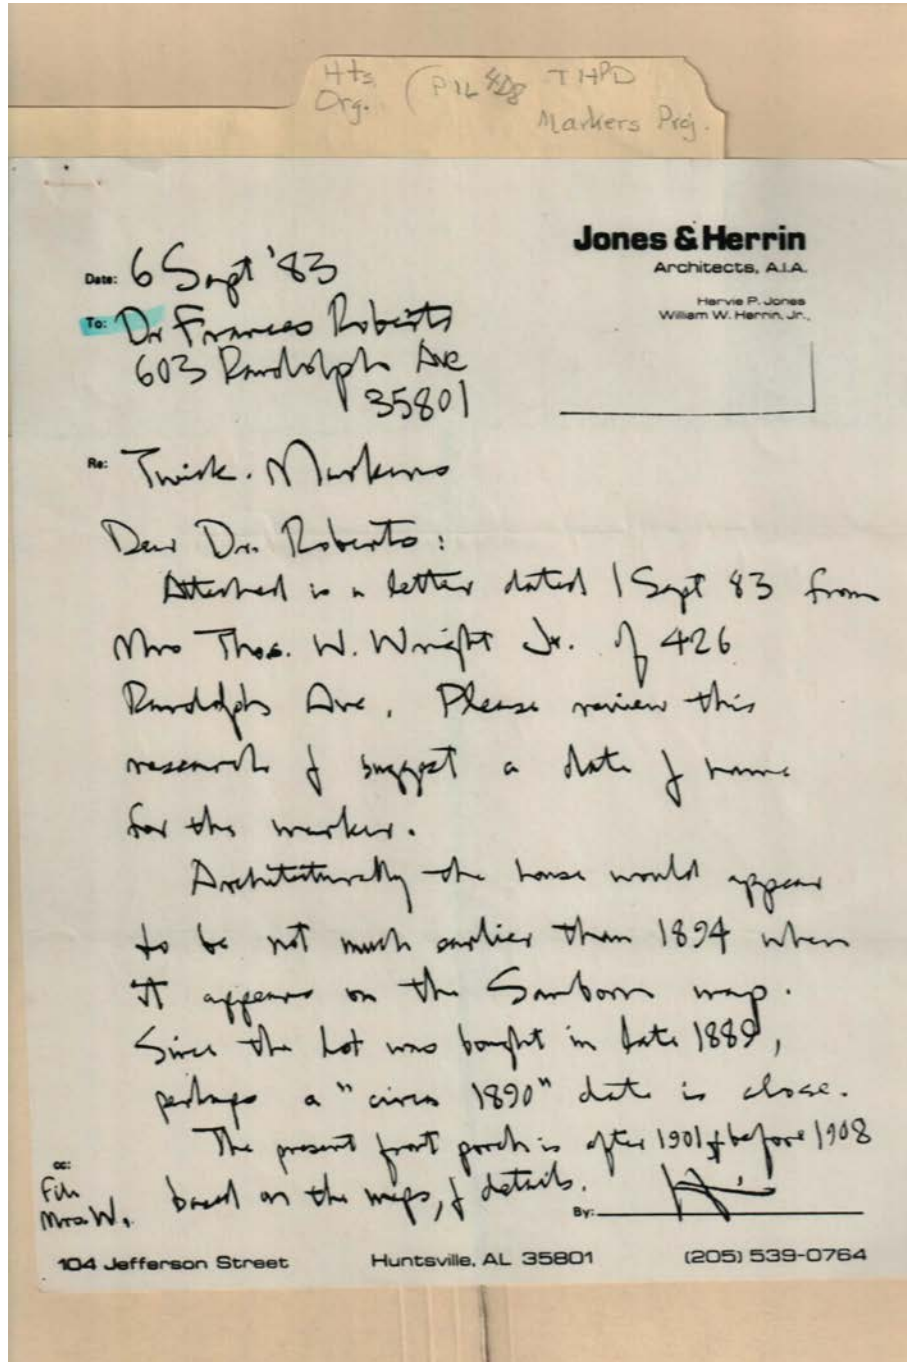 Hts THPD
Org. Markers Proj.
Jones & Herrin
Architects, A.I.A.
Harvie P. Jones
William W. Herrin, Jr.,
Date: 6 Sept '83
To: Dr Frances Roberts
603 Randolph Ave
35801
Re: Twick. Markers
Dear Dr. Roberts:
Attached is a letter dated 1 Sept 83 from
Mrs Thos. W. Wright Jr. of 426
Randolph Ave. Please review this
research & suggest a date & name
for the marker.
Architecturally the house would appear
to be not much earlier than 1894 when
it appears on the Sanborn map.
Since the lot was bought in late 1889,
perhaps a "circa 1890" date is close.
The present front porch is after 1901 & before 1908
based on the maps, & details.
cc:
File
Mrs W.
By:
104 Jefferson Street Huntsville, AL 35801 (205) 539-0764